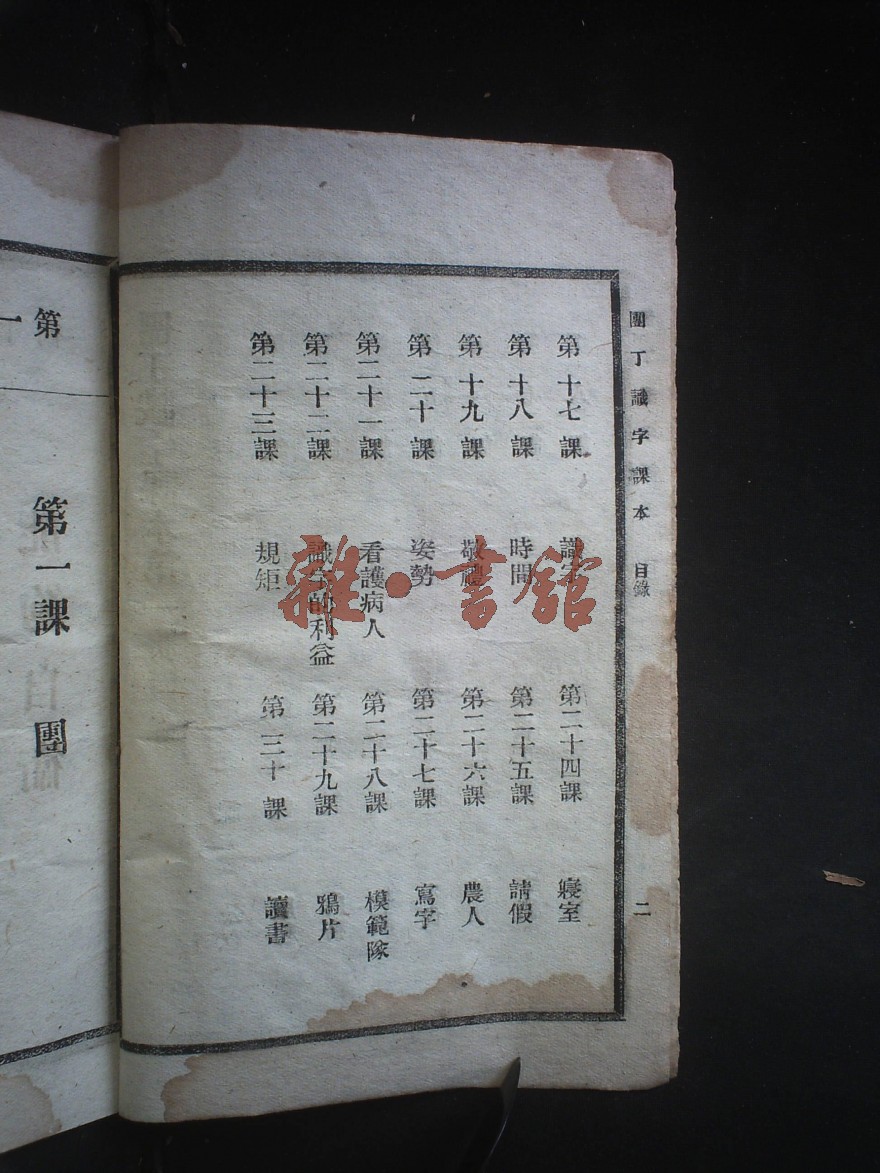 團丁識字課本 目錄 二
第十七課 識字
第十八課 時間
第十九課 敬禮
第二十課 姿勢
第二十一課 看護病人
第二十二課 識字的利益
第二十三課 規矩
第二十四課 寢室
第二十五課 請假
第二十六課 農人
第二十七課 寫字
第二十八課 模範隊
第二十九課 鴉片
第三十課 讀書
第一
第一課 團
雜·書館